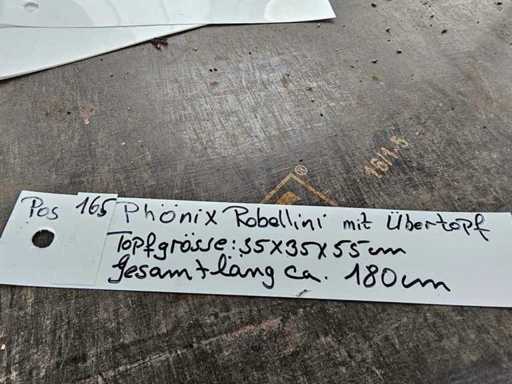 Pos 165 Phönix Robellini mit Übertopf
Topfgrösse: 35x35x55cm
Gesamtläng ca. 180cm
®
16/1.5